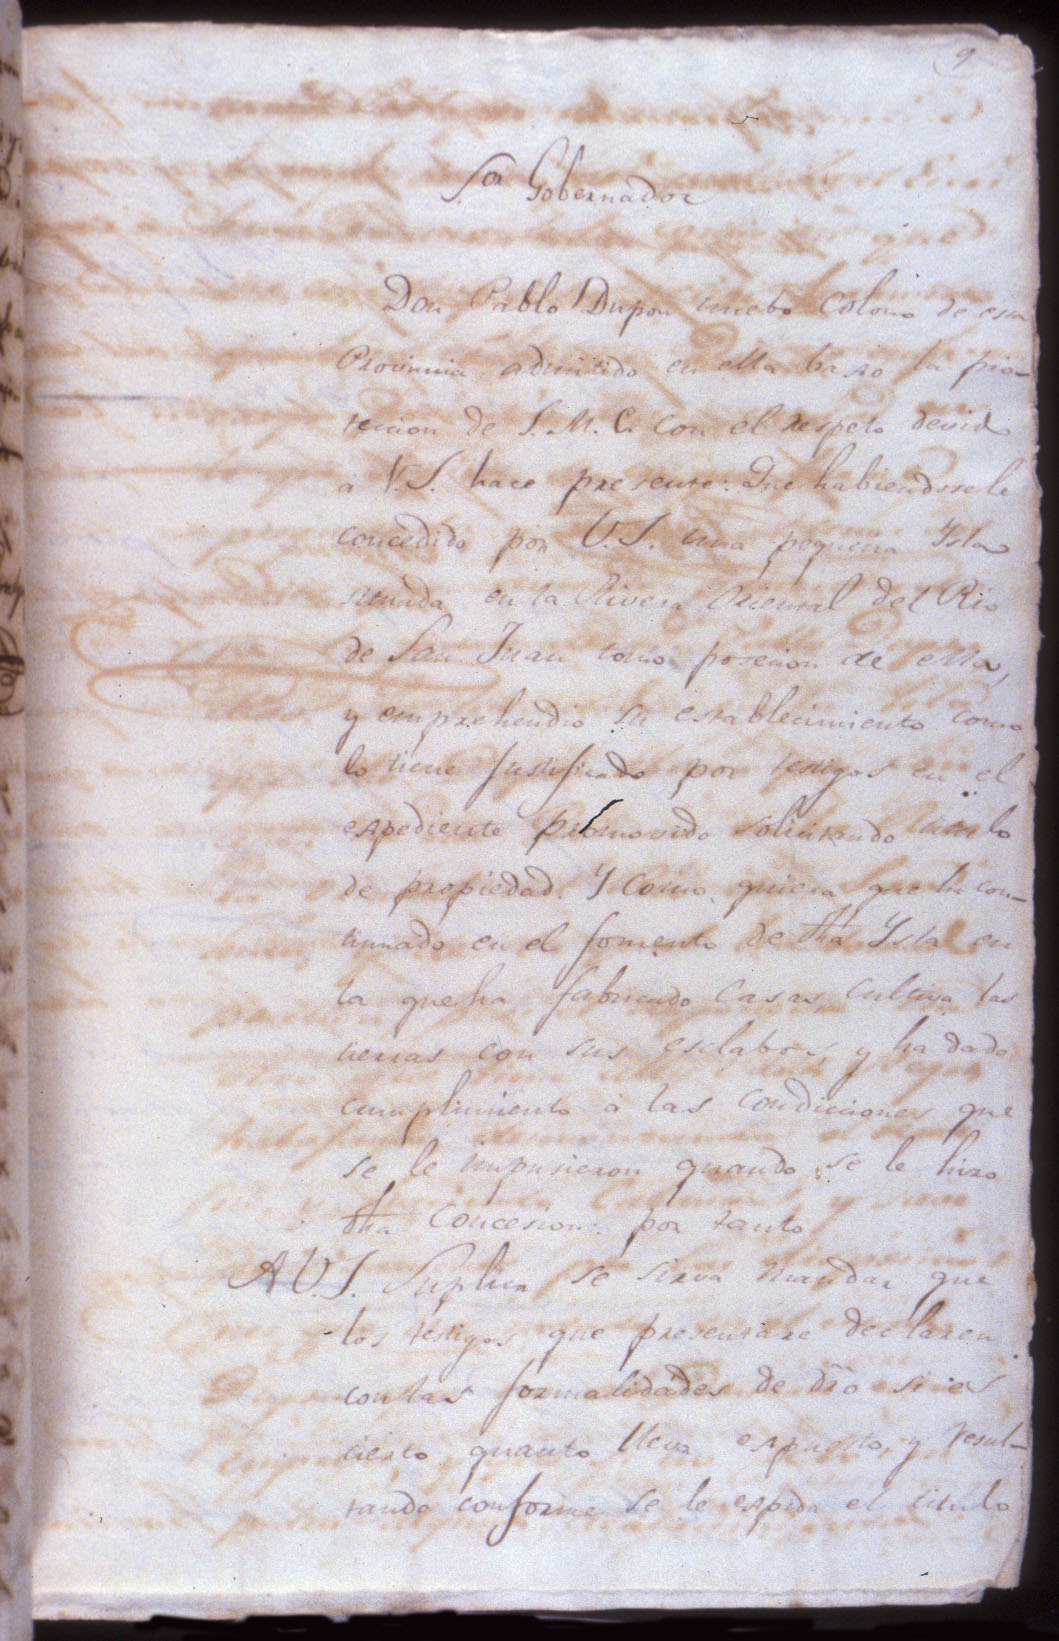 9
S.or Gobernador
Don Pablo Dupon nuebo Colono de esta
Provincia admitido en ella baxo la pro-
teccion de S. M. C. con el respeto devido
a V. S. hace presente: Que habiendosele
concedido por V. S. una pequeña Ysla
situada en la Rivera Oriental del Rio
de San Juan tomó posecion de ella,
y emprehendio su establecimiento como
lo tiene justificado por testigos en el
expediente promovido solicitando titulo
de propiedad. Y como quiera que ha con-
tinuado en el fomento de dha Ysla en
la que ha fabricado Casas, cultiva las
tierras con sus esclabos, y ha dado
cumplimiento à las condiciones que
se le impusieron quando se le hizo
dha Concesion: por tanto
A V. S. Suplica se sirva mandar que
los testigos que presentare declaren
con las formalidades de dro si es
cierto quanto lleva expuesto, y resul-
tando conforme se le expida el titulo